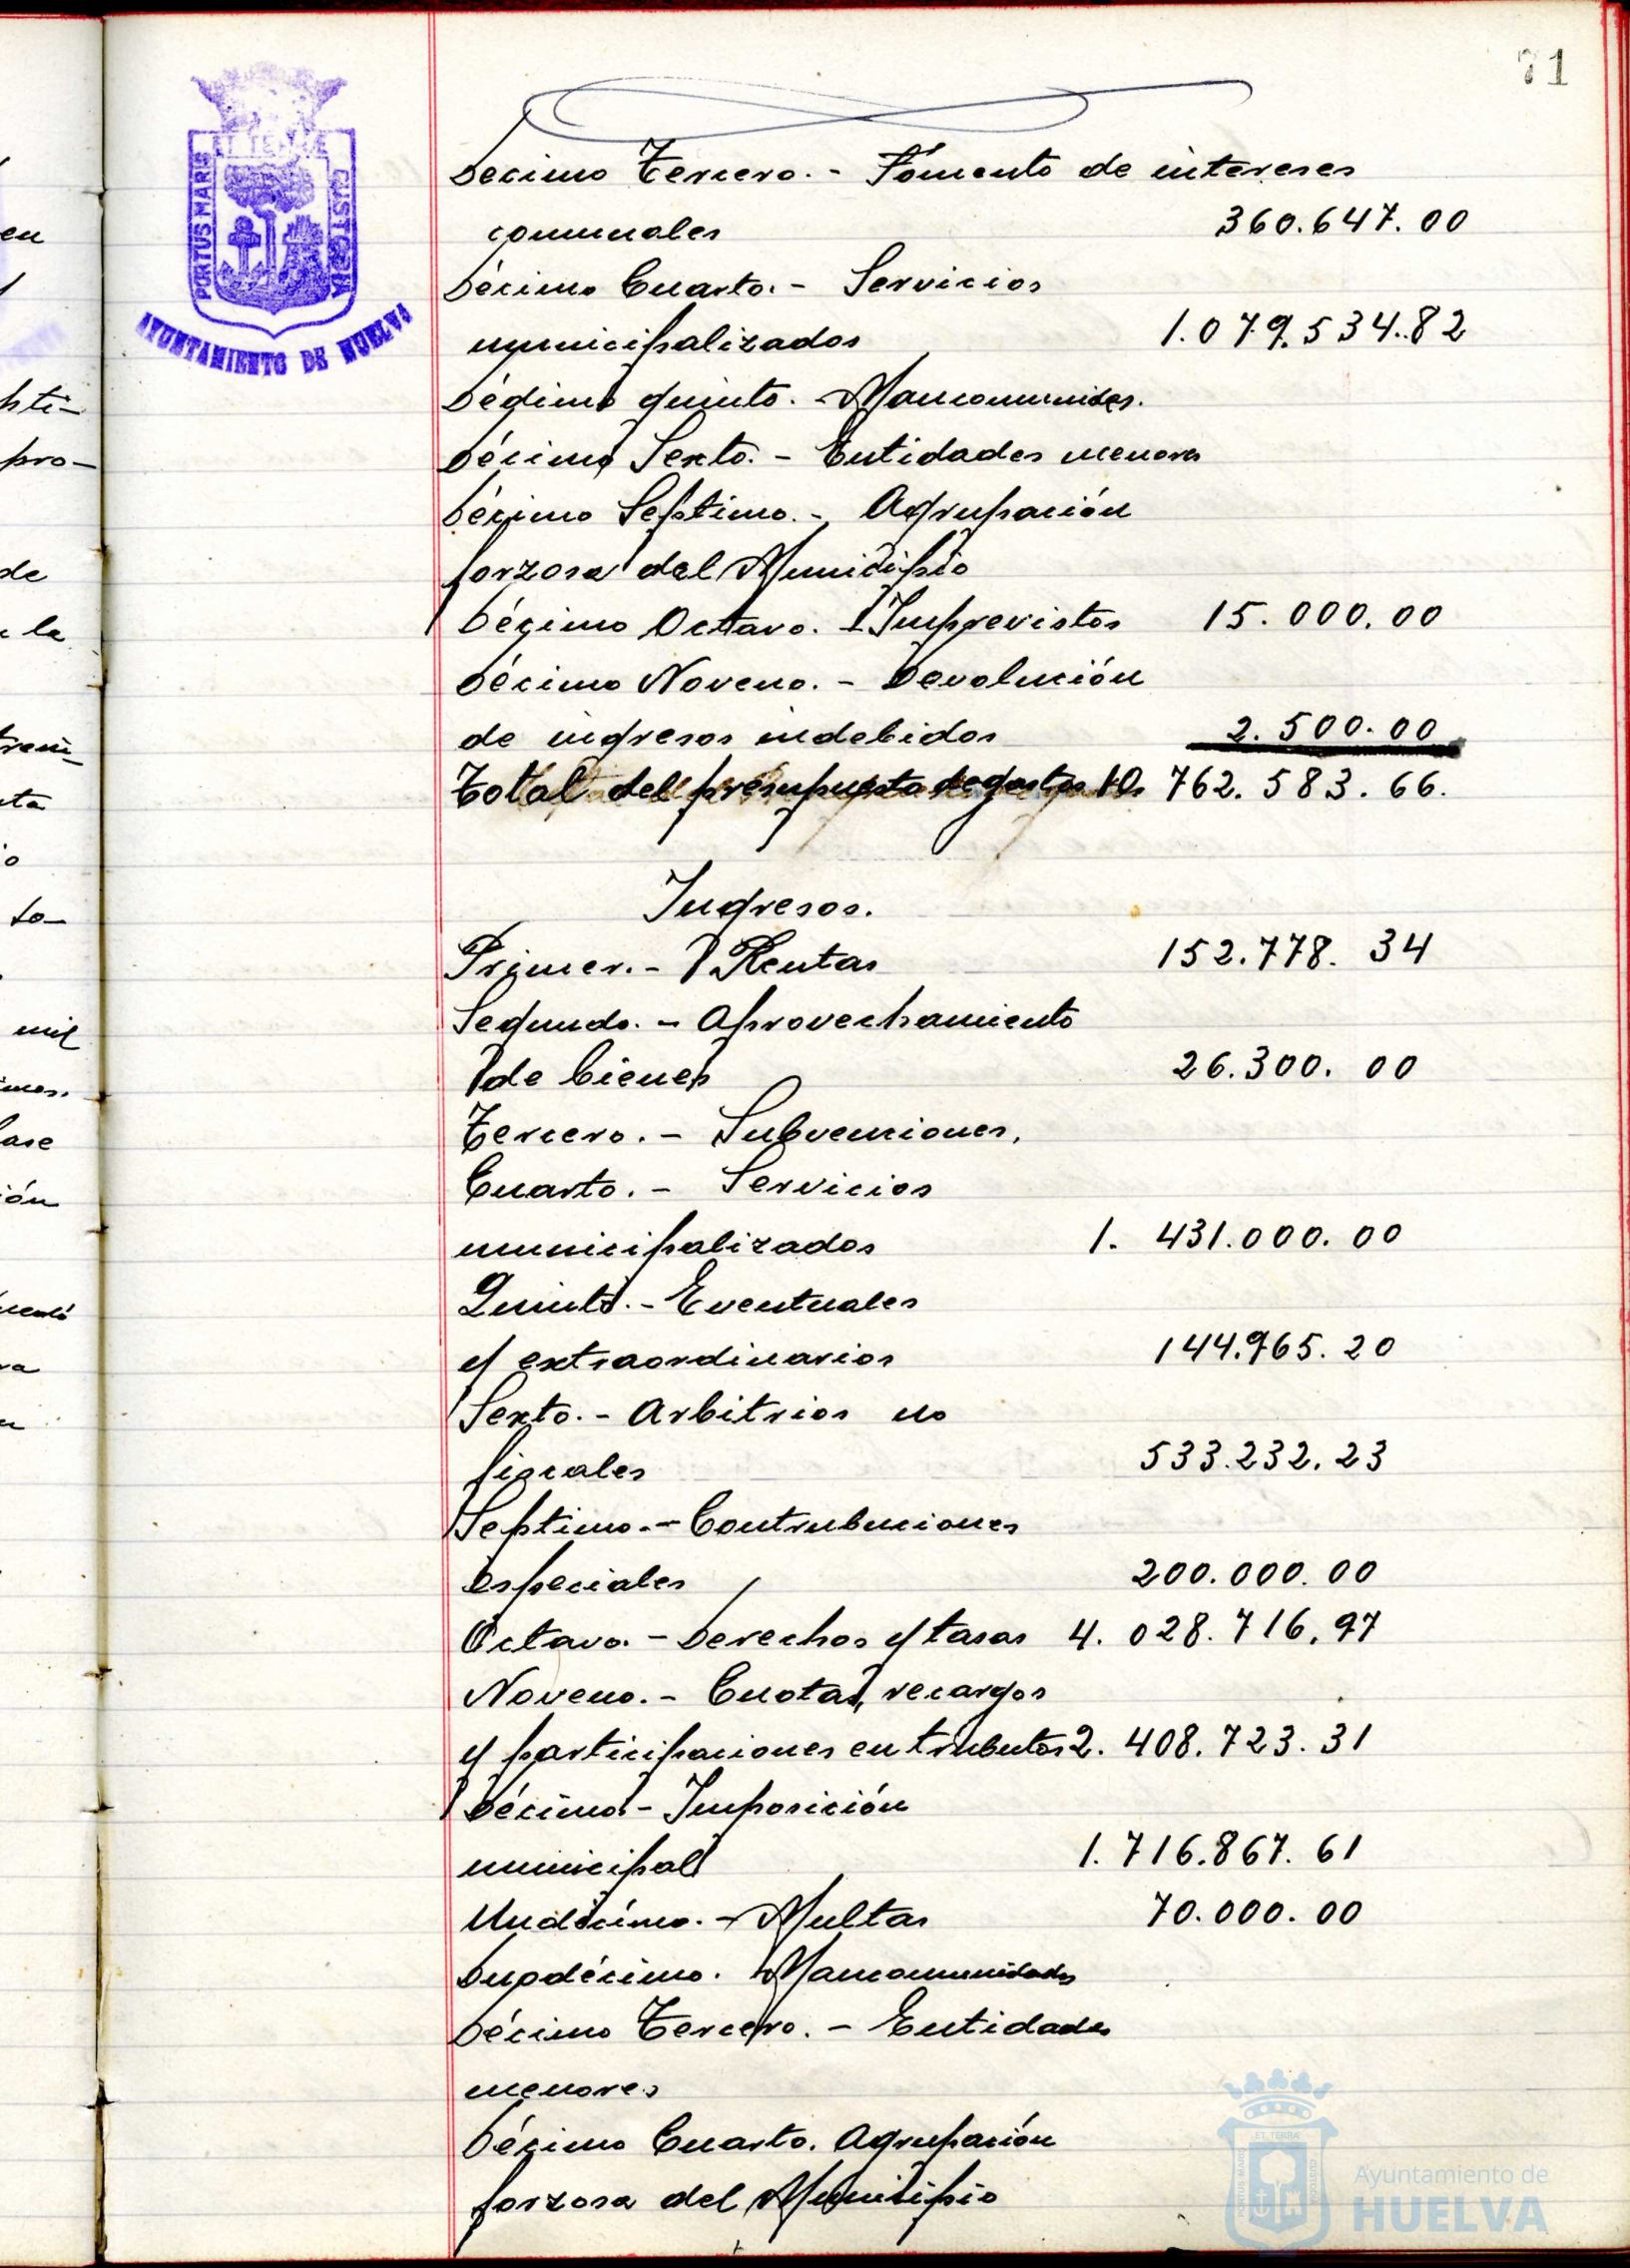 71
ET TERRE
PORTUS MARIS
CUSTODIA
AYUNTAMIENTO DE HUELVA
Decimo Tercero. - Fomento de intereses
comunales 360.647.00
Décimo Cuarto. - Servicios
municipalizados 1.079.534.82
Décimo quinto. - Mancomunides.
Décimo Sexto. - Entidades menores
Décimo Septimo. - Agrupación
forzosa del Municipio
Décimo Octavo. - Imprevistos 15.000.00
Décimo Noveno. - Devolución
de ingresos indebidos 2.500.00
Total del presupuesto de gastos 10. 762.583.66.
Ingresos.
Primer. - Rentas 152.778.34
Segundo. - Aprovechamiento
de bienes 26.300.00
Tercero. - Subvenciones.
Cuarto. - Servicios
municipalizados 1.431.000.00
Quinto. - Eventuales
y extraordinarios 144.965.20
Sexto. - Arbitrios no
fiscales 533.232.23
Septimo. - Contribuciones
especiales 200.000.00
Octavo. - Derechos y tasas 4.028.716,97
Noveno. - Cuotas, recargos
y participaciones en tributos 2.408.723.31
Décimo - Imposición
municipal 1.716.867.61
Undécimo. - Multas 70.000.00
Duodécimo. - Mancomunidades
Décimo Tercero. - Entidades
menores
Décimo Cuarto. Agrupación
forzosa del Municipio
en
pro-
de
la
mil
ión
Ayuntamiento de
HUELVA